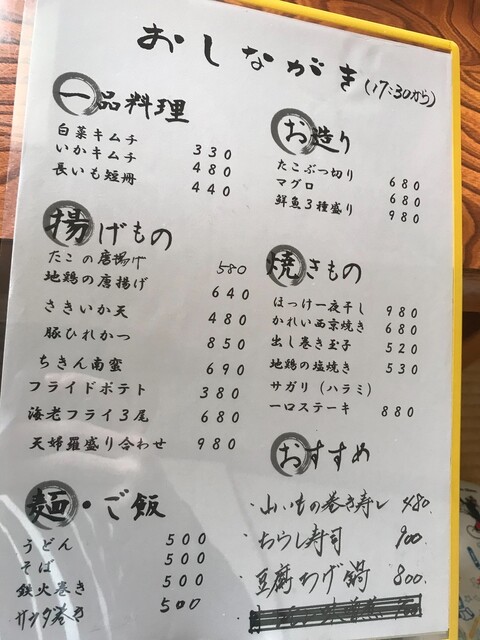 おしながき(17:30から)
一品料理
白菜キムチ 330
いかキムチ 480
長いも短冊 440
揚げもの
たこの唐揚げ 580
地鶏の唐揚げ 640
さきいか天 480
豚ひれかつ 850
ちきん南蛮 690
フライドポテト 380
海老フライ3尾 680
天婦羅盛り合わせ 980
麺・ご飯
うどん 500
そば 500
鉄火巻き 500
サラダ巻き 500
お造り
たこぶつ切り 680
マグロ 680
鮮魚3種盛り 980
焼きもの
ほっけ一夜干し 980
かれい西京焼き 680
出し巻き玉子 520
地鶏の塩焼き 530
サガリ(ハラミ)
一口ステーキ 880
おすすめ
・山いもの巻き寿し 480.
・ちらし寿司 900
・豆腐あげ鍋 800.